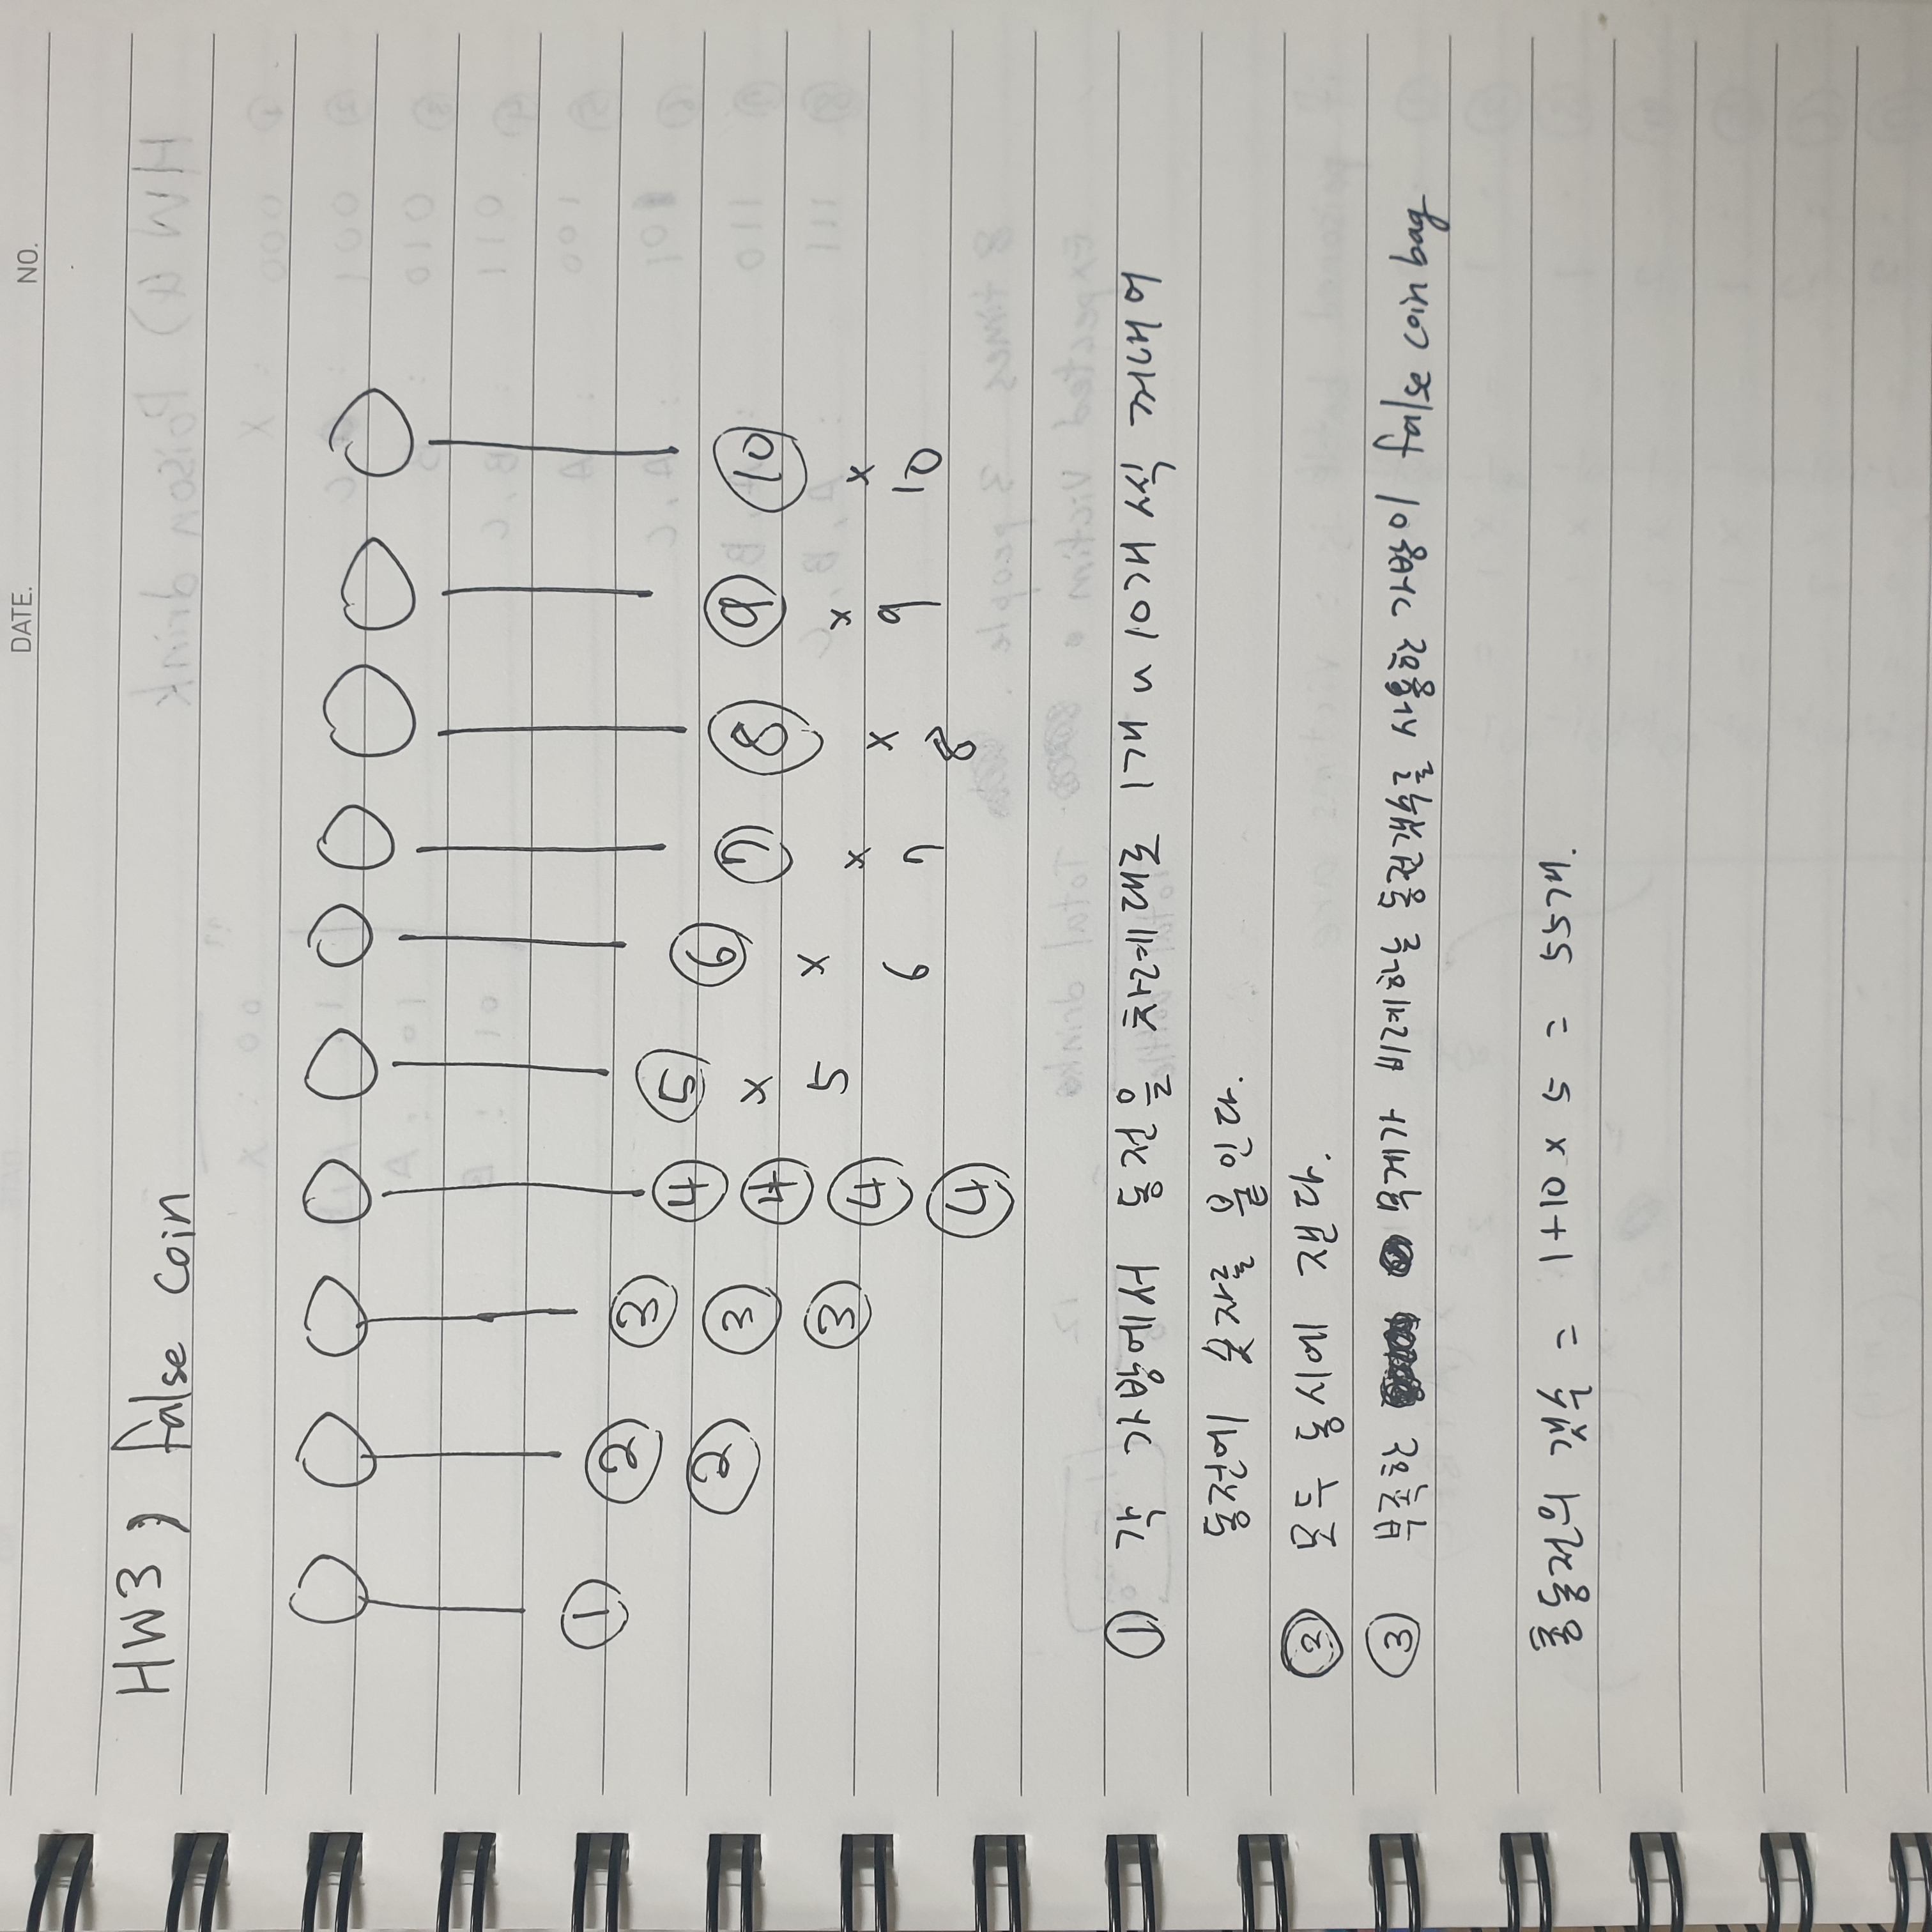 DATE.
NO.
HW3) false coin
① ② ③ ④ ⑤ ⑥ ⑦ ⑧ ⑨ ⑩
② ③ ④ x x x x x x
③ ④ 5 6 7 8 9 10
④
① 각 가방에서 동전을 차례대로 1개 ~ 10개 씩 꺼내어
동전에 숫자를 붙인다.
② 모두 동시에 잰다.
③ 부족한 무게가 비례하는 동전갯수를 사용한 가방이 false coin bag
총동전의 갯수 = 1+10 x 5 = 55개.